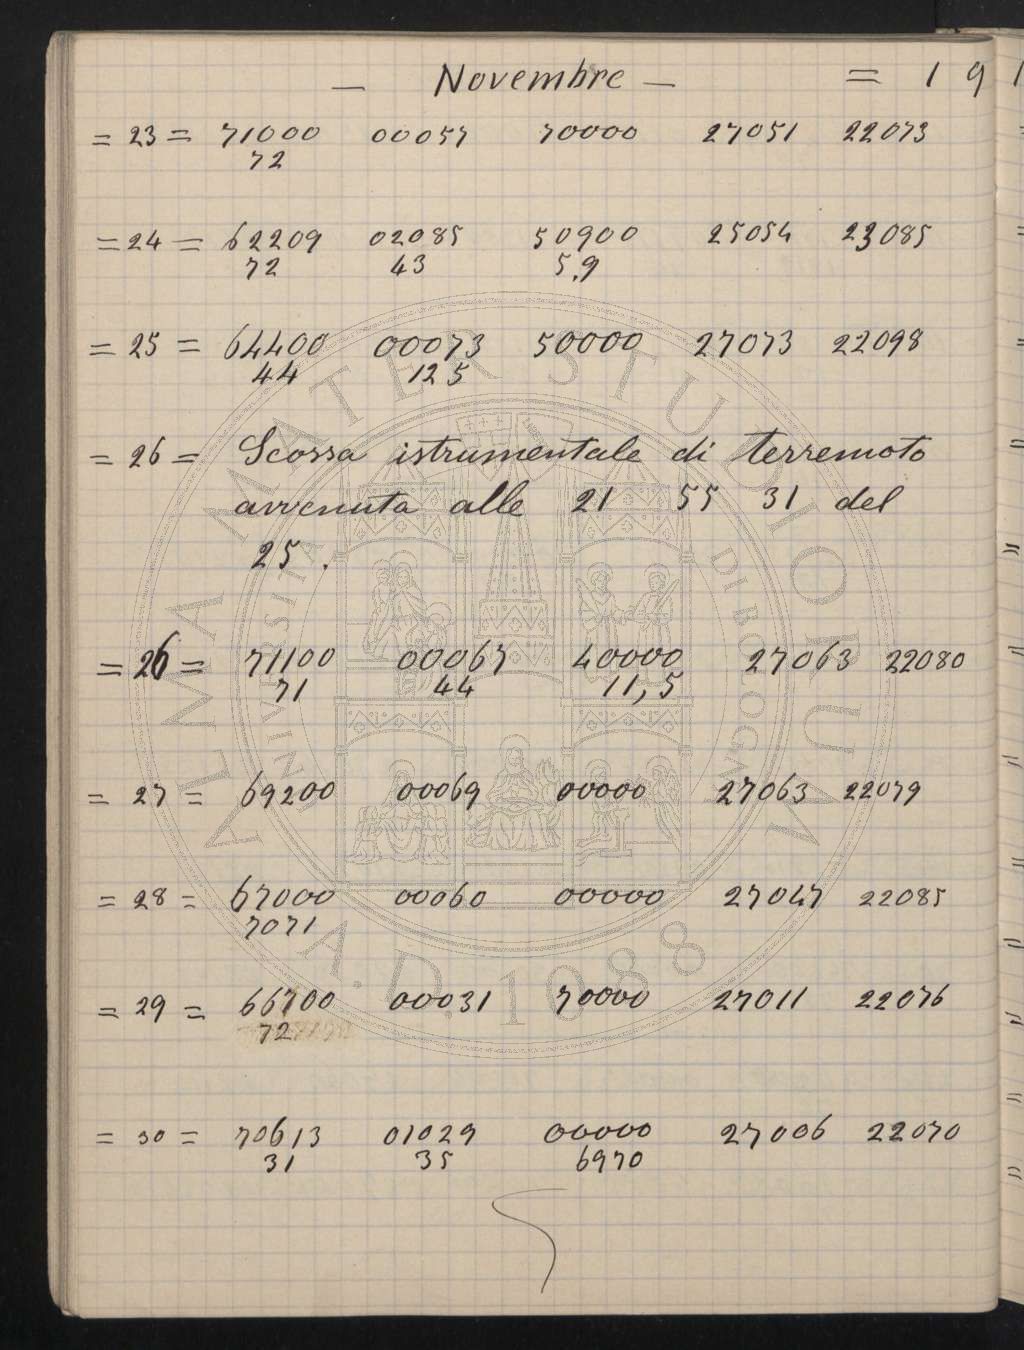 — Novembre — = 1 9 1
= 23 = 71000 00057 70000 27051 22073
72
= 24 = 62209 02085 50900 25054 23085
72 43 5.9
= 25 = 64400 00073 50000 27073 22098
44 125
= 26 = Scossa istrumentale di terremoto
avvenuta alle 21 55 31 del
25.
= 26 = 71100 00067 40000 27063 22080
71 44 11,5
= 27 = 69200 00069 00000 27063 22079
= 28 = 67000 00060 00000 27047 22085
7071
= 29 = 66700 00031 70000 27011 22076
72
= 30 = 70613 01029 00000 27006 22070
31 35 6970
ALMA MATER STUDIORUM
UNIVERSITÀ DI BOLOGNA
A.D. 1088